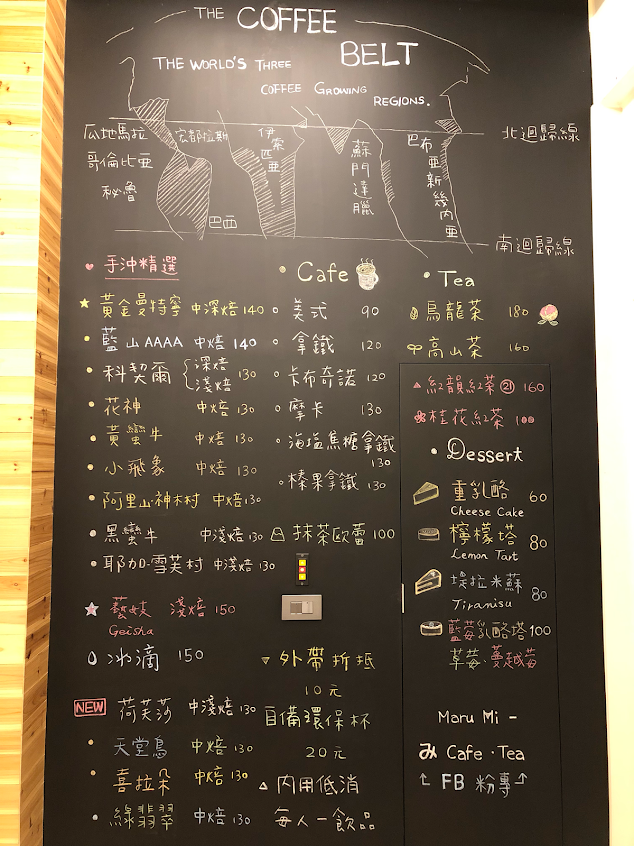 THE COFFEE
BELT
THE WORLD'S THREE
COFFEE GROWING
REGIONS.
瓜地馬拉
宏都拉斯
衣索匹亞
蘇門達臘
巴布亞新幾內亞
北迴歸線
哥倫比亞
秘魯
巴西
南迴歸線
手沖精選
黃金曼特寧 中深焙 140
藍山AAAA 中焙 140
科契爾 深焙 淺焙 130
花神 中焙 130
黃蠻牛 中焙 130
小飛象 中焙 130
阿里山.神木村 中焙 130
黑蠻牛 中淺焙 130
耶加.雪芙村 中淺焙 130
藝妓 淺焙 150
Geisha
冰滴 150
NEW 荷芙莎 中淺焙 130
天堂鳥 中焙 130
喜拉朵 中焙 130
綠翡翠 中焙 130
Cafe
美式 90
拿鐵 120
卡布奇諾 120
摩卡 130
海塩焦糖拿鐵
130
榛果拿鐵 130
抹茶欧蕾 100
外帶折抵
10元
自備環保杯
20元
內用低消
每人一飲品
Tea
烏龍茶 180
高山茶 160
紅韻紅茶 21 160
桂花紅茶 100
Dessert
重乳酪 60
Cheese Cake
檸檬塔 80
Lemon Tart
堤拉米蘇 80
Tiramisu
藍莓乳酪塔 100
草莓.蔓越莓
Maru Mi -
み Cafe · Tea
FB 粉專